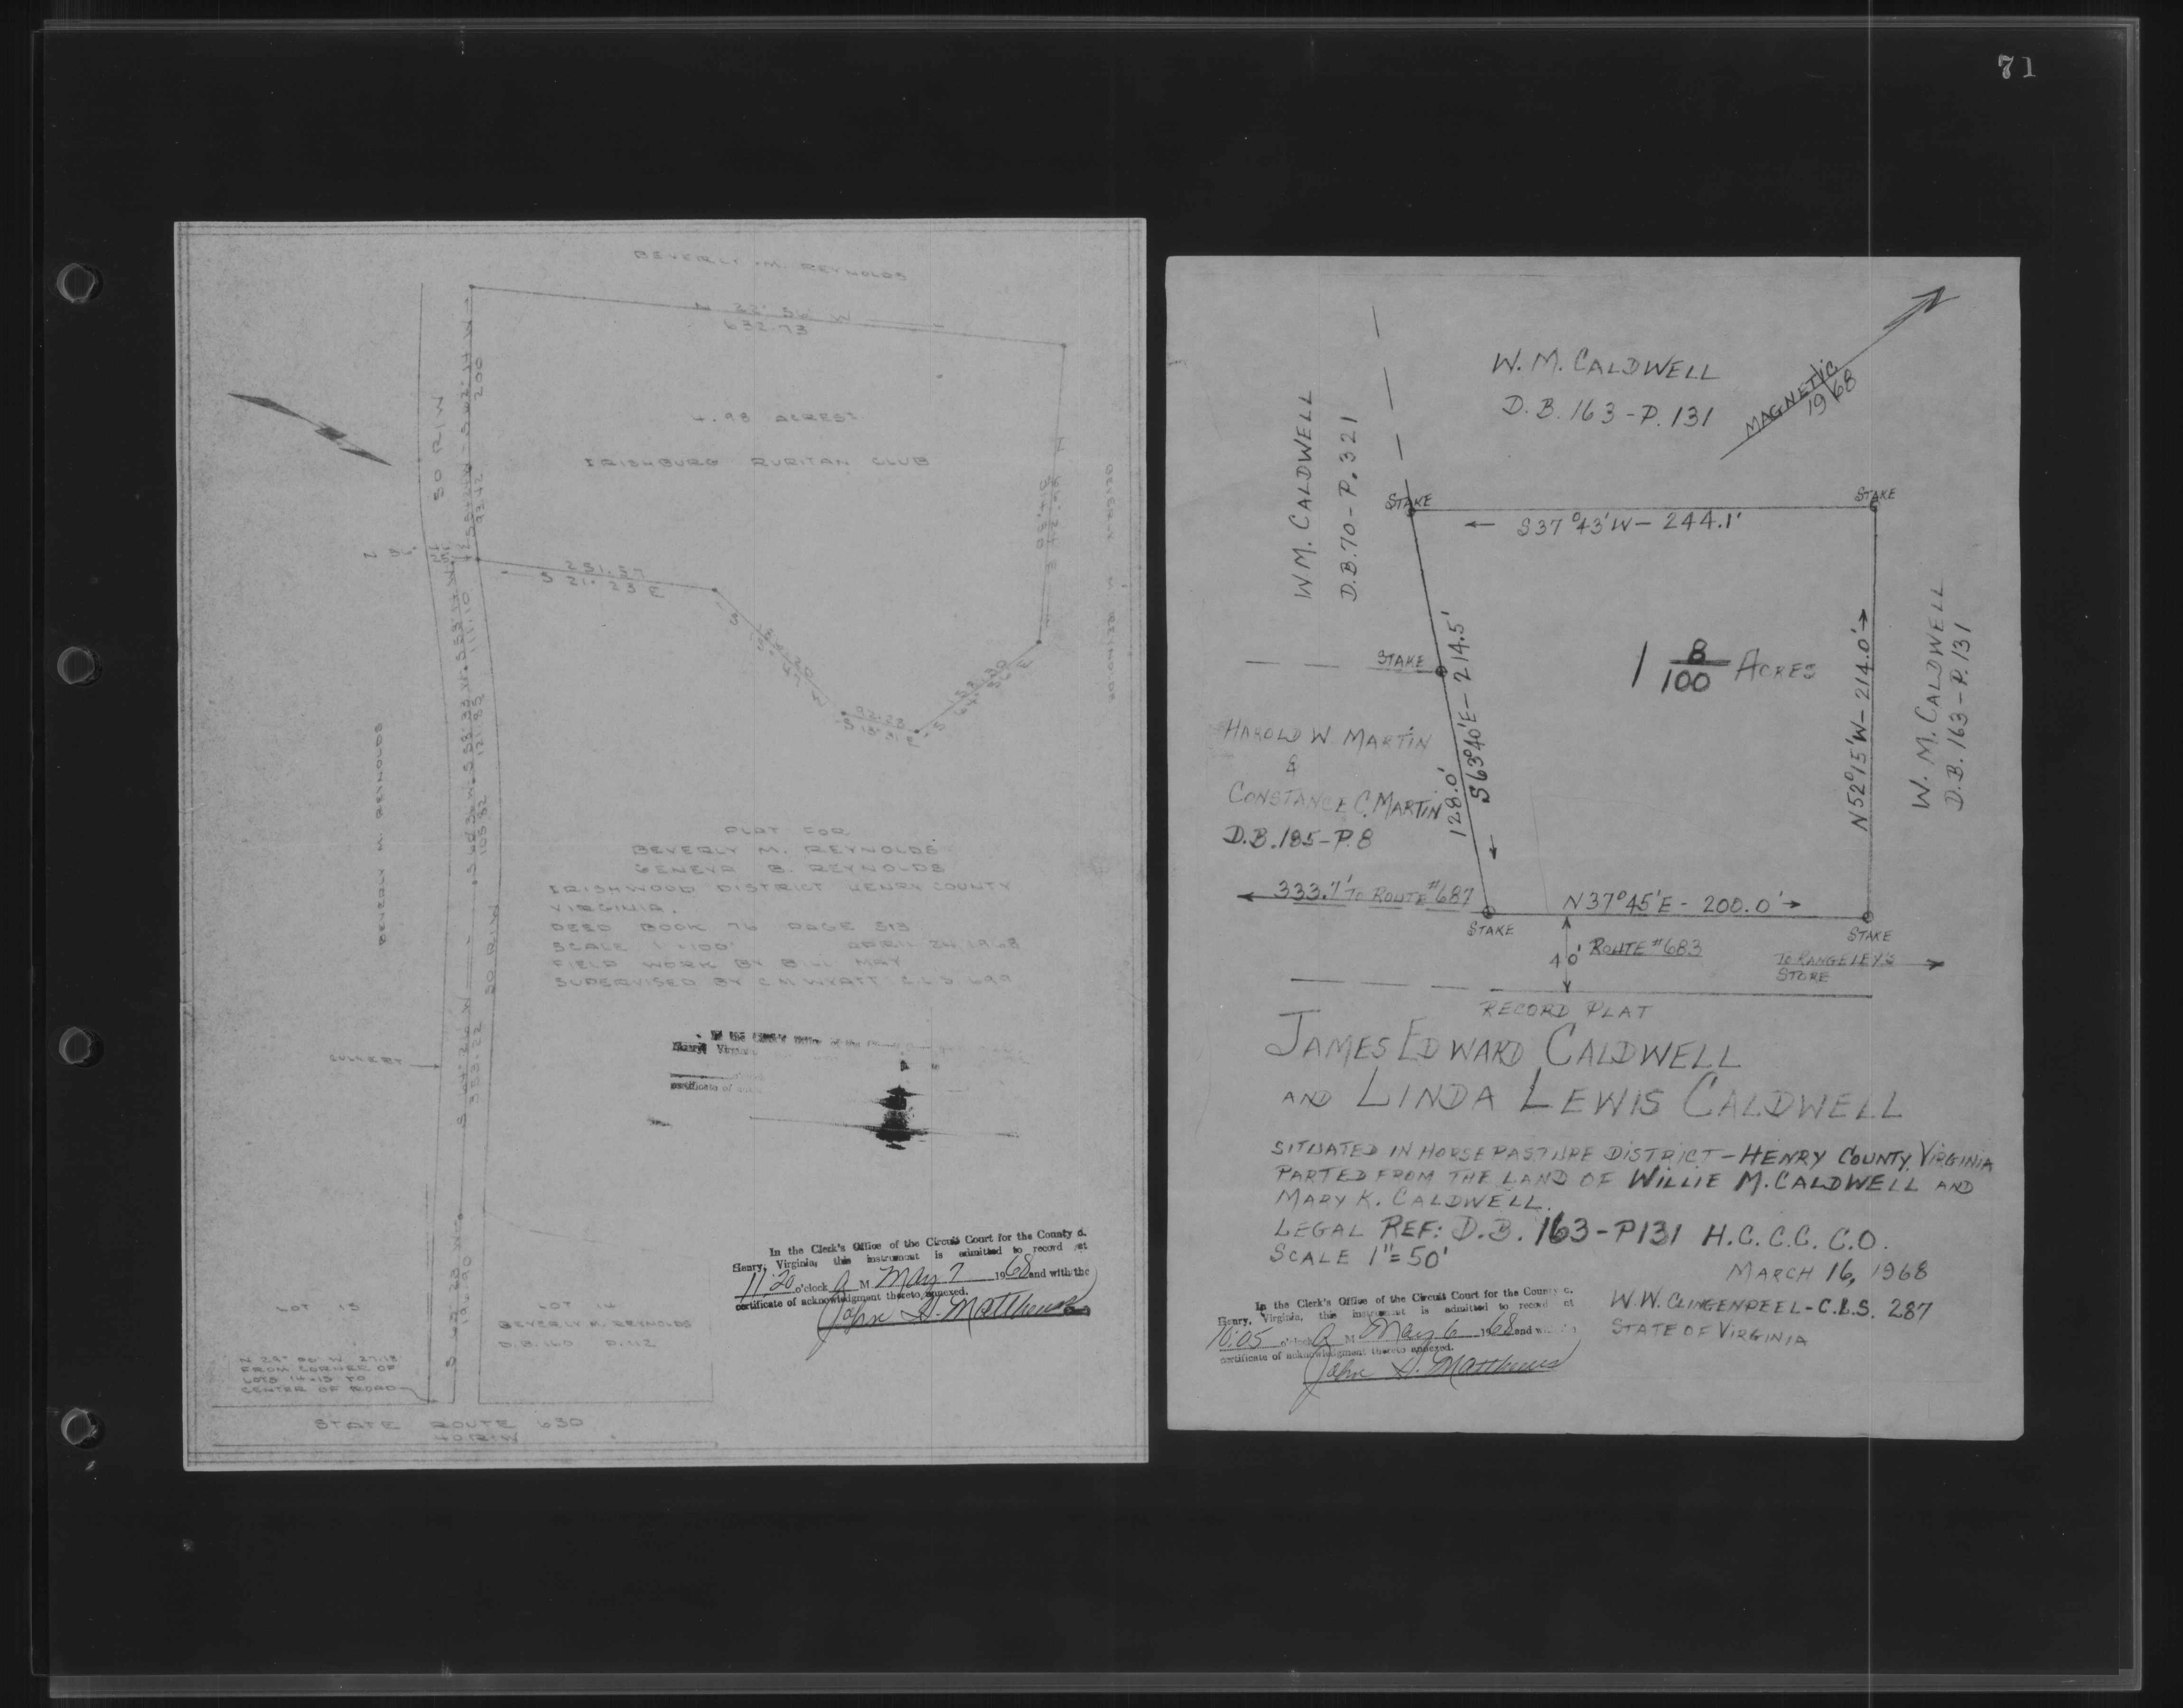 71
BEVERLY M. REYNOLDS
N 22° 56 W
632.73
50 R/W
200
4.98 ACRES±
IRISHBURG RURITAN CLUB
251.57
S 21° 23 E
92.28
BEVERLY M. REYNOLDS
BEVERLY M. REYNOLDS
111.10
121.85
105.82
50 R/W
353.22
PLAT FOR
BEVERLY M. REYNOLDS
GENEVA B. REYNOLDS
IRISHWOOD DISTRICT HENRY COUNTY
VIRGINIA.
DEED BOOK 76 PAGE 513
SCALE 1"=100' APRIL 24, 1968
FIELD WORK BY BILL MAY
SUPERVISED BY C M WYATT C.L.S 699
In the Clerk's Office of the
Henry, Virginia
certificate of
In the Clerk's Office of the Circuit Court for the County of
Henry, Virginia, this instrument is admitted to record at
11:20 o'clock A M May 7 1968 and with the
certificate of acknowledgment thereto, annexed.
John H. Matthews
LOT 15
LOT 14
BEVERLY M. REYNOLDS
D.B. 160 P. 112
FROM CORNER OF
LOTS 14-15 TO
CENTER OF ROAD
STATE ROUTE 630
40 R/W
W. M. CALDWELL
D.B. 163-P. 131
MAGNETIC
1968
WM. CALDWELL
D.B. 70-P. 321
STAKE
STAKE
← S37°43'W - 244.1'
STAKE
1 8/100 ACRES
S63°40'E - 214.5'
128.0'
N52°15'W - 214.0' →
W. M. CALDWELL
D.B. 163-P. 131
HAROLD W MARTIN
&
CONSTANCE C. MARTIN
D.B. 185-P. 8
333.7' TO ROUTE #687
N37°45'E - 200.0' →
STAKE
STAKE
40' ROUTE #683
TO RANGELEY'S
STORE
RECORD PLAT
JAMES EDWARD CALDWELL
AND LINDA LEWIS CALDWELL
SITUATED IN HORSEPASTURE DISTRICT - HENRY COUNTY, VIRGINIA
PARTED FROM THE LAND OF WILLIE M. CALDWELL AND
MARY K. CALDWELL.
LEGAL REF: D.B. 163-P131 H.C.C.C. C.O.
SCALE 1"=50'
MARCH 16, 1968
W.W. CLINGENPEEL - C.L.S. 287
STATE OF VIRGINIA
In the Clerk's Office of the Circuit Court for the County of
Henry, Virginia, this instrument is admitted to record at
10:05 o'clock A M May 6 1968 and
certificate of acknowledgment thereto annexed.
John H. Matthews